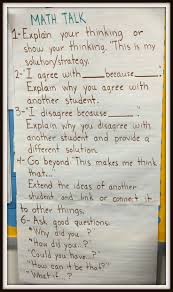 MATH TALK
1- Explain your thinking or
show your thinking. "This is my
solution/strategy.
2- "I agree with ____ because ____."
Explain why you agree with
another student.
3- "I disagree because ____."
Explain why you disagree with
another student and provide a
different solution.
4- Go beyond "This makes me think
that...
Extend the ideas of another
student and link or connect it
to other things.
6- Ask good questions:
"Why did you...?"
"How did you...?"
"Could you have...?"
"How can it be that?"
"What if...?"